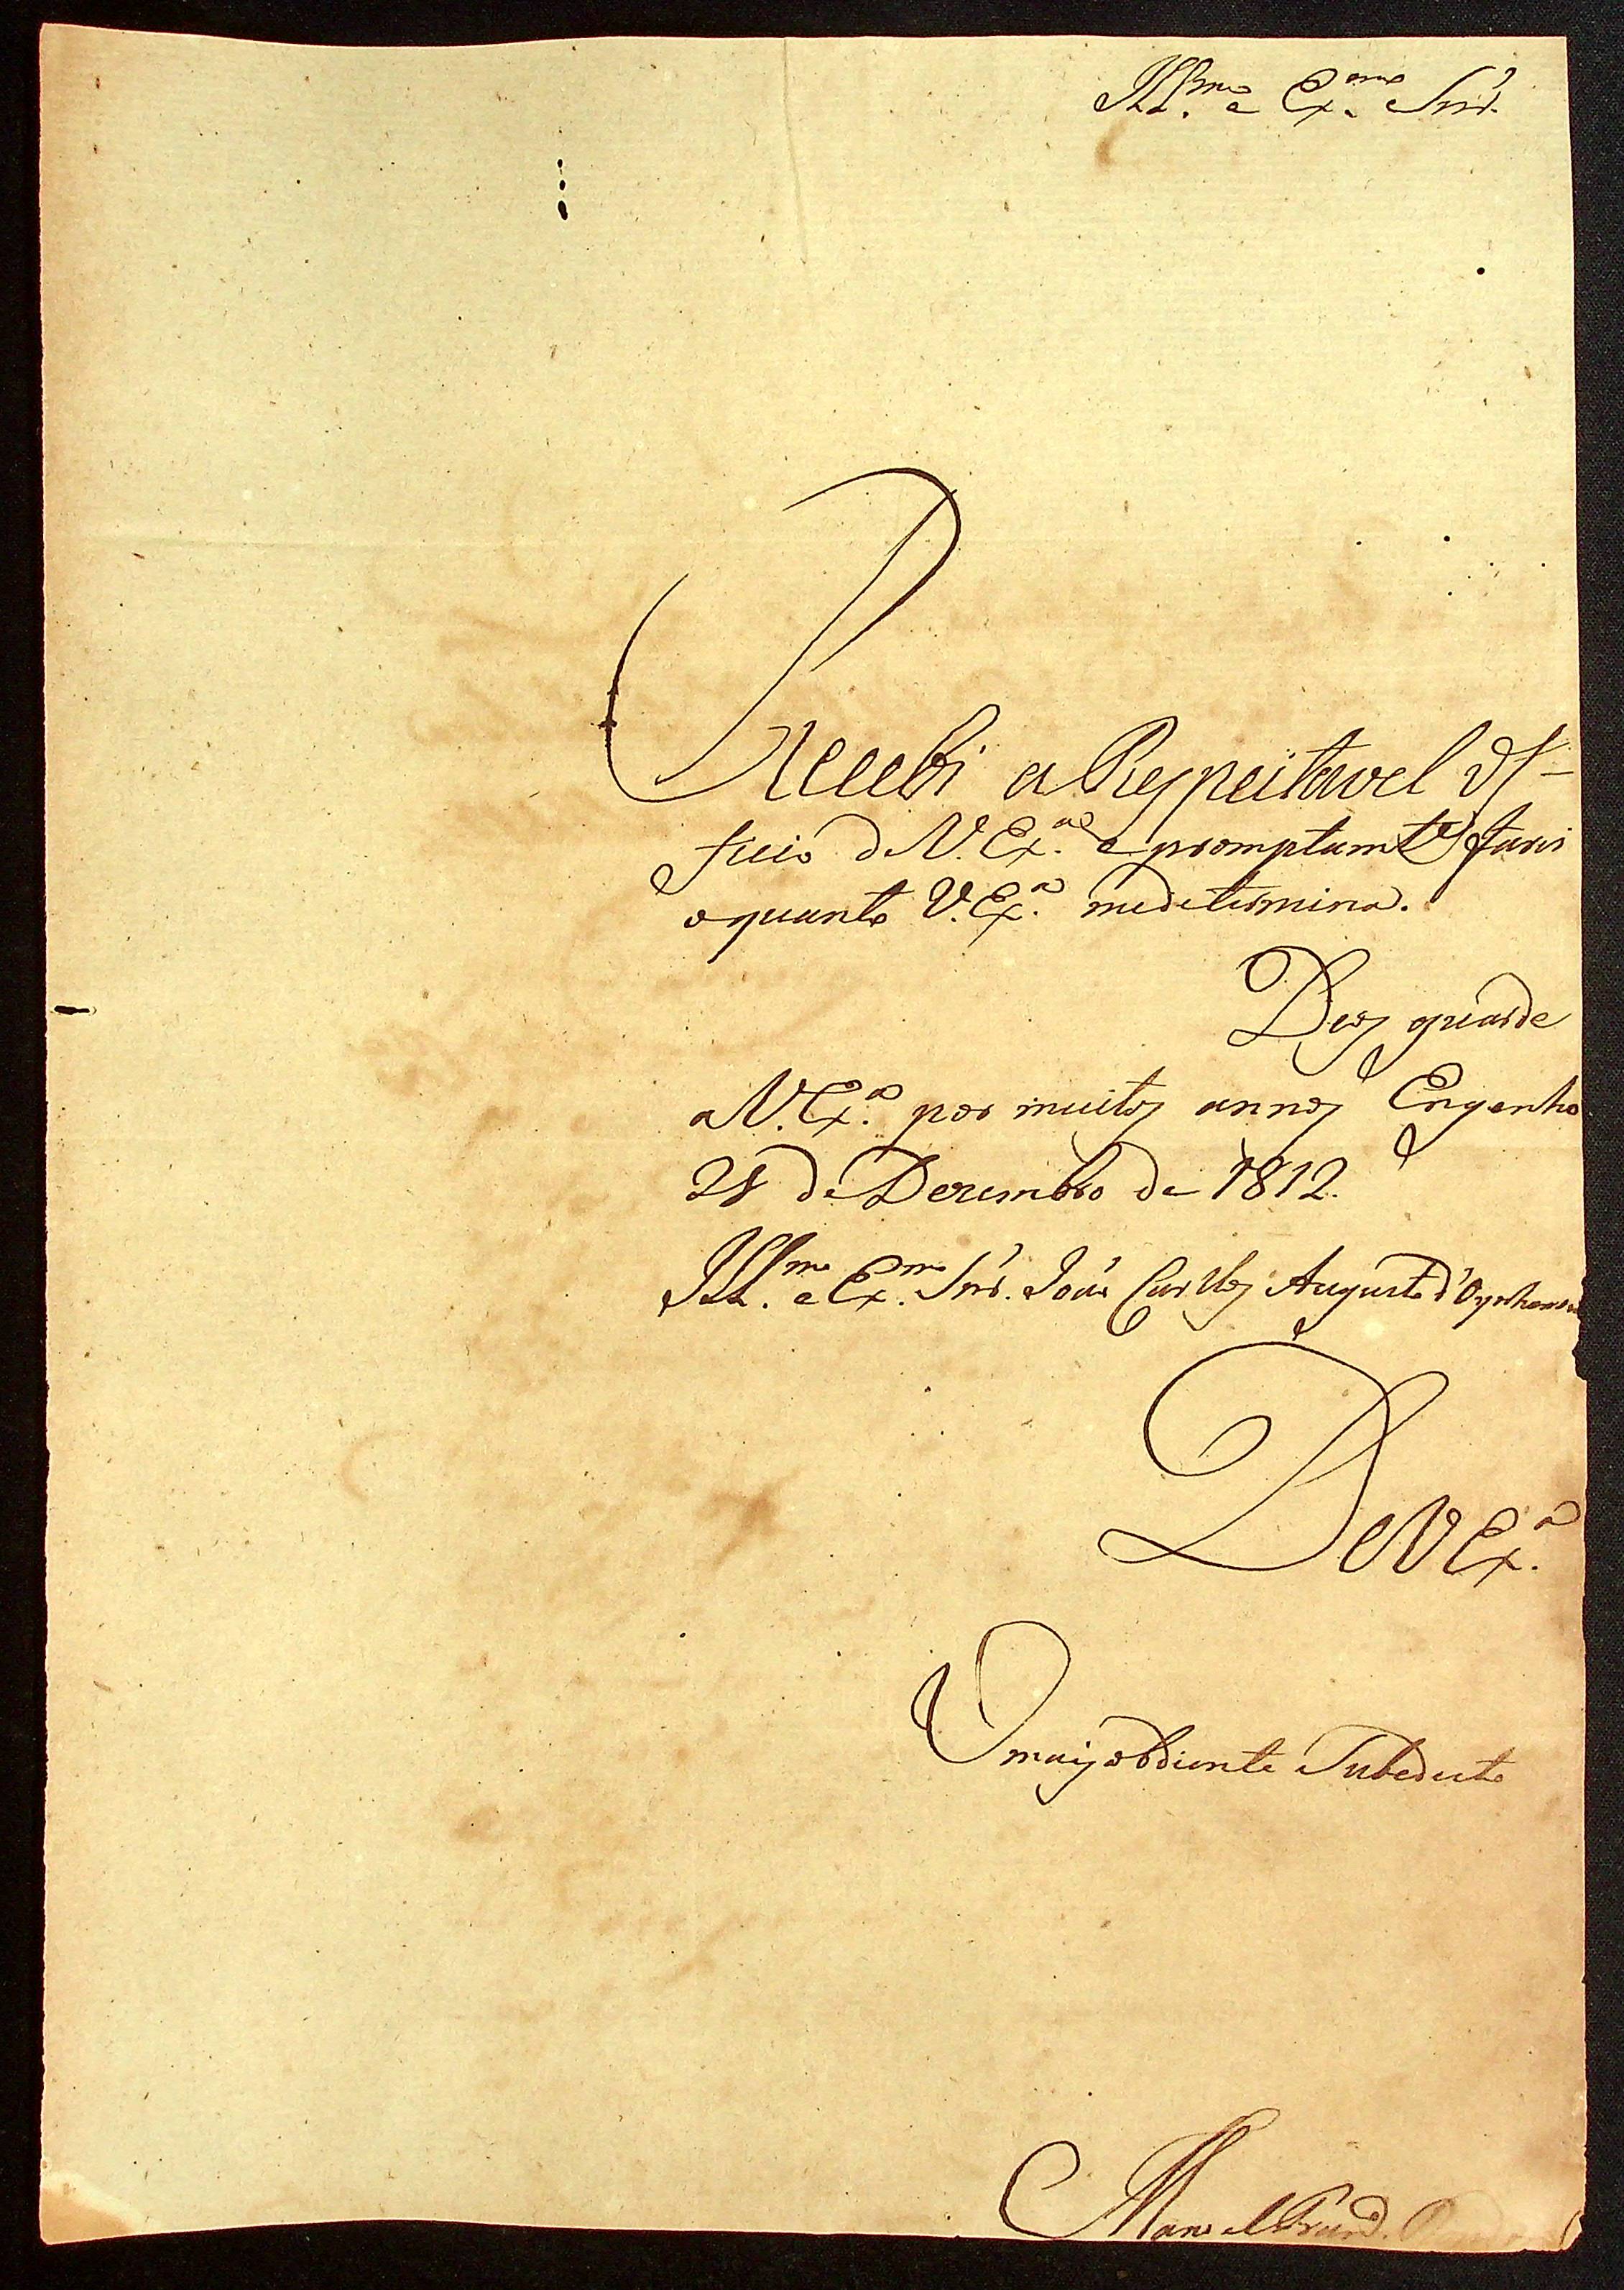 Ill.mo e Ex.mo Snr.
Recebi a Respeitavel Of-
ficio de V. Ex.a e promptam.te farei
o quanto V. Ex.a me determina.
Deos guarde
a V. Ex.a por muitos annos Engenho
28 de Dezembro de 1812.
Ill.mo e Ex.mo Snr. João Carllos Augusto d'Oyenhausen
De V Ex.a
O mais obdiente Subedeto
Manoel